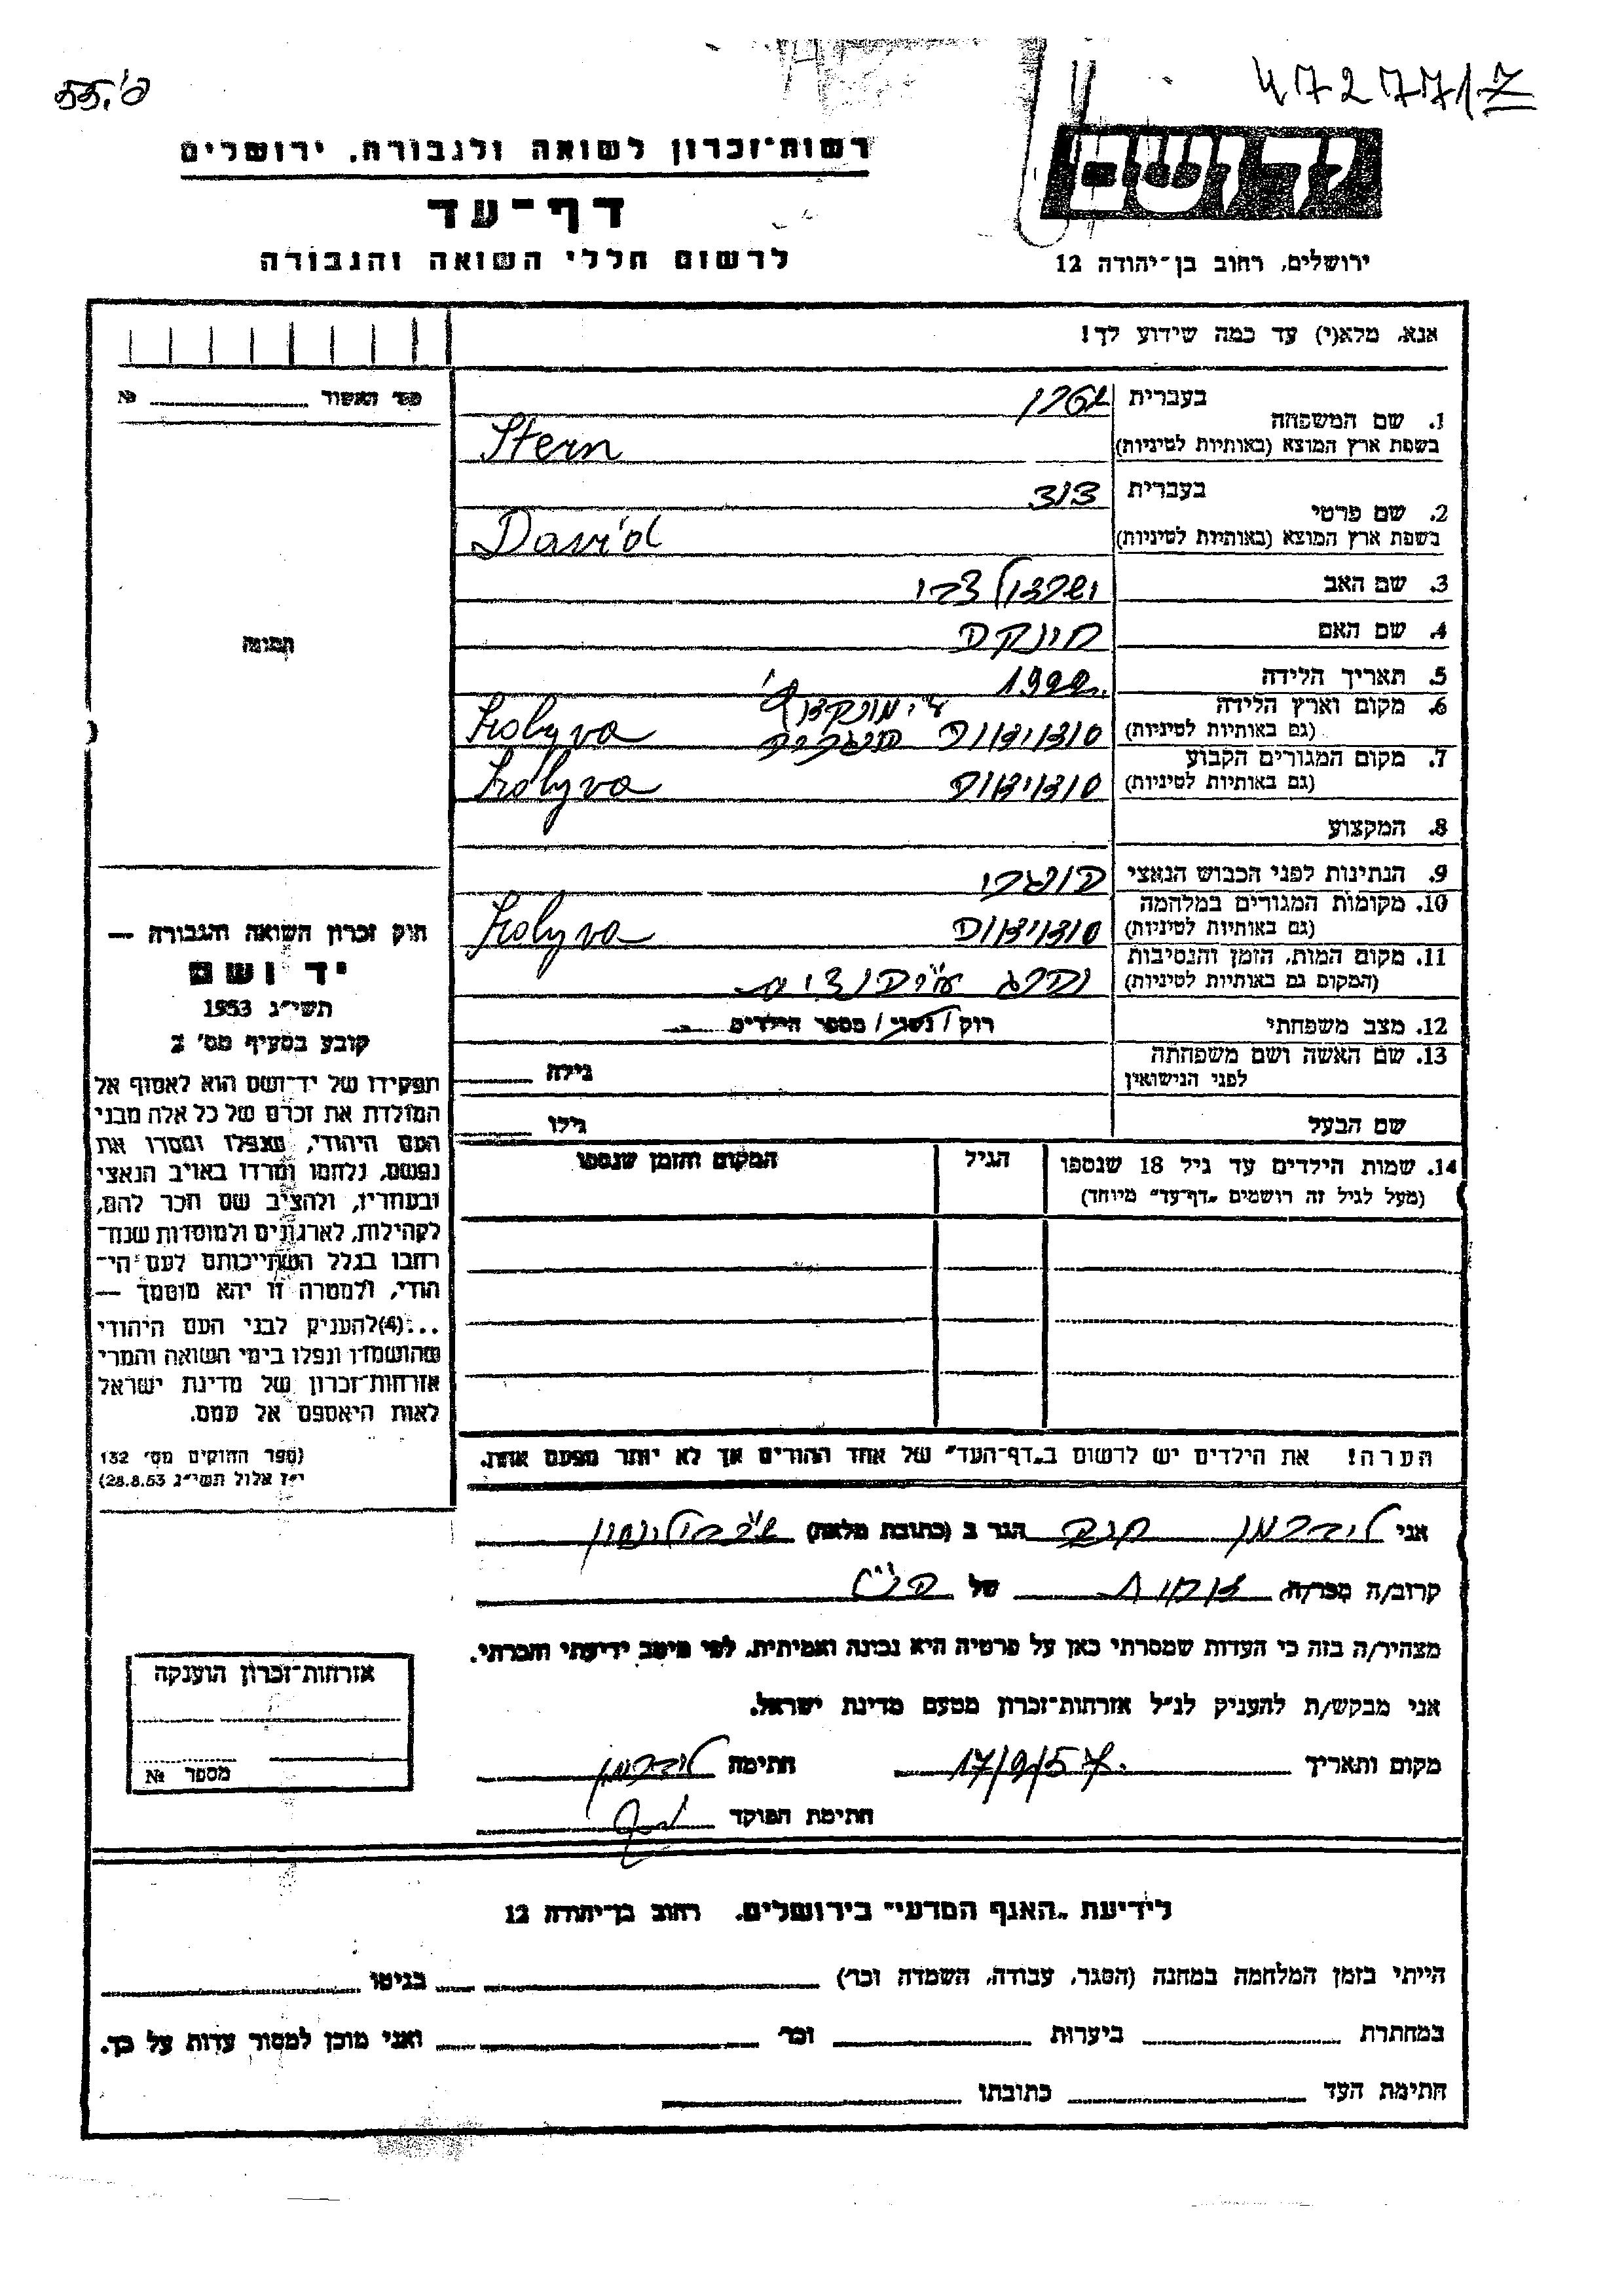 472771/Z
רשות־זכרון לשואה ולגבורה, ירושלים
יד ושם
דף־עד
לרשום חללי השואה והגבורה
ירושלים, רחוב בן־יהודה 12
אנא, מלא(י) עד כמה שידוע לך!
מס׳ האשור № 
בעברית שטרן
1. שם המשפחה
בשפת ארץ המוצא (באותיות לטיניות) Stern
בעברית דוד
2. שם פרטי
בשפת ארץ המוצא (באותיות לטיניות) Dávid
3. שם האב
4. שם האם
5. תאריך הלידה 1922.
6. מקום וארץ הלידה
(גם באותיות לטיניות) Szolyva
7. מקום המגורים הקבוע
(גם באותיות לטיניות) Szolyva
8. המקצוע
9. הנתינות לפני הכבוש הנאצי הונגרי
10. מקומות המגורים במלחמה
(גם באותיות לטיניות) Szolyva
11. מקום המות, הזמן והנסיבות
(המקום גם באותיות לטיניות) נהרג ע״י הנאצים
12. מצב משפחתי רוק/נשוי/מספר הילדים
13. שם האשה ושם משפחתה
לפני הנישואין גילה
שם הבעל גילו
14. שמות הילדים עד גיל 18 שנספו הגיל המקום והזמן שנספו
(מעל לגיל זה רושמים „דף־עד״ מיוחד)
הערה! את הילדים יש לרשום ב„דף־העד״ של אחד ההורים אך לא יותר מפעם אחת.
תמונה
חוק זכרון השואה והגבורה —
יד ושם
תשי״ג 1953
קובע בסעיף מס׳ 2
תפקידו של יד־ושם הוא לאסוף אל
המולדת את זכרם של כל אלה מבני
העם היהודי, שנפלו ומסרו את
נפשם, נלחמו ומרדו באויב הנאצי
ובעוזריו, ולהציב שם וזכר להם,
לקהילות, לארגונים ולמוסדות שנח־
רבו בגלל השתייכותם לעם הי־
הודי, ולמטרה זו יהא מוסמך —
...(4) להעניק לבני העם היהודי
שהושמדו ונפלו בימי השואה והמרי
אזרחות־זכרון של מדינת ישראל
לאות היאספם אל עמם.
(ספר החוקים מס׳ 132
י״ז אלול תשי״ג 28.8.53)
אני ליברמן חנה הגר ב (כתובת מלאה)
קרוב/ה מכר/ה של
מצהיר/ה בזה כי העדות שמסרתי כאן על פרטיה היא נכונה ואמיתית, לפי מיטב ידיעתי והכרתי.
אני מבקש/ת להעניק לנ״ל אזרחות־זכרון מטעם מדינת ישראל.
מקום ותאריך 17/9/57. חתימה ליברמן
חתימת הפוקד
אזרחות־זכרון הוענקה
מספר №
לידיעת „האגף המדעי״ בירושלים, רחוב בן־יהודה 12
הייתי בזמן המלחמה במחנה (הסגר, עבודה, השמדה וכר׳) בגיטו
במחתרת ביערות וכר׳ ואני מוכן למסור עדות על כך.
חתימת העד כתובתו